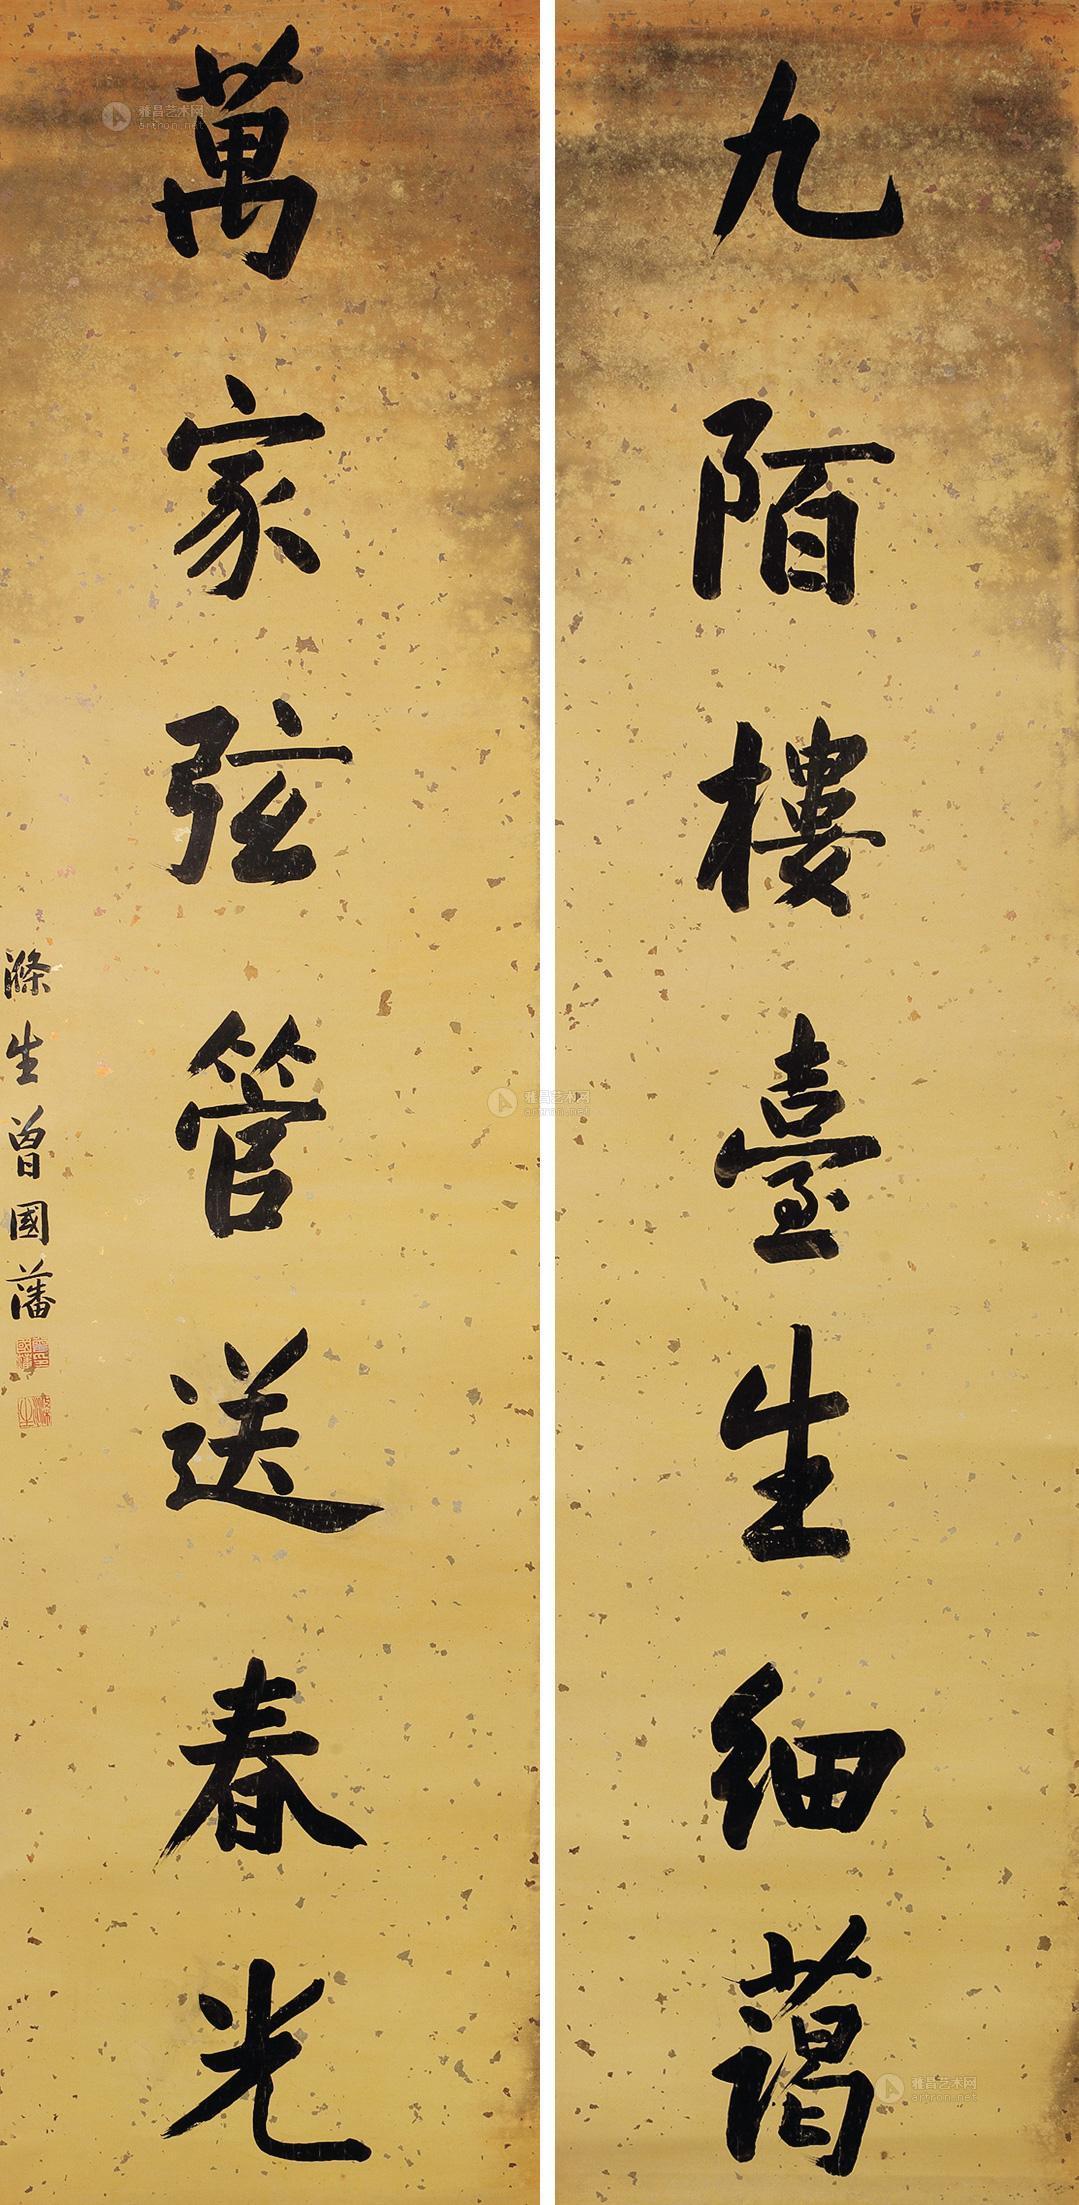 九陌樓臺生細藹
萬家弦管送春光
滌生曾國藩
雅昌艺术网
artron.net
雅昌艺术网
artron.net
雅昌艺术网
artron.net